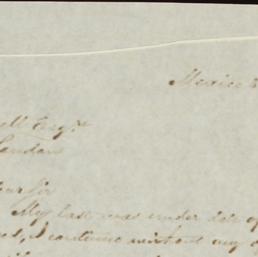 Mexico
ell Esqr.
London
ear Sir
My last was under date of
ed, I continue without any